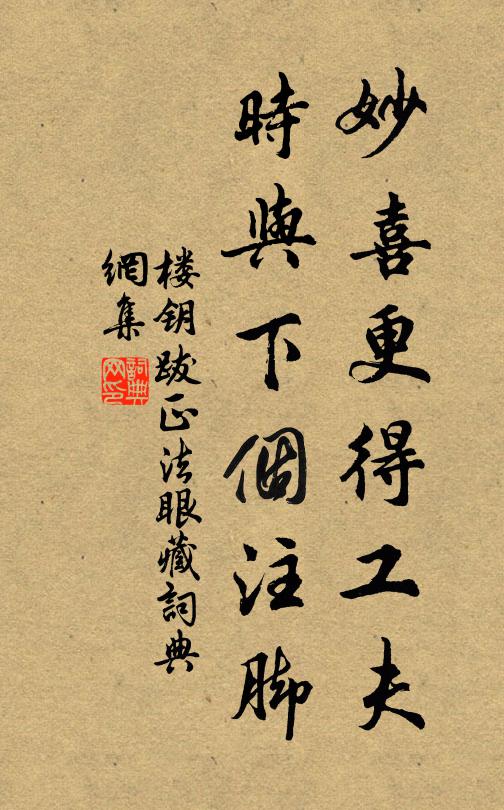 妙喜更得工夫
時與下個注脚
楼钥跋正法眼藏詞典
網集
詞典
网印